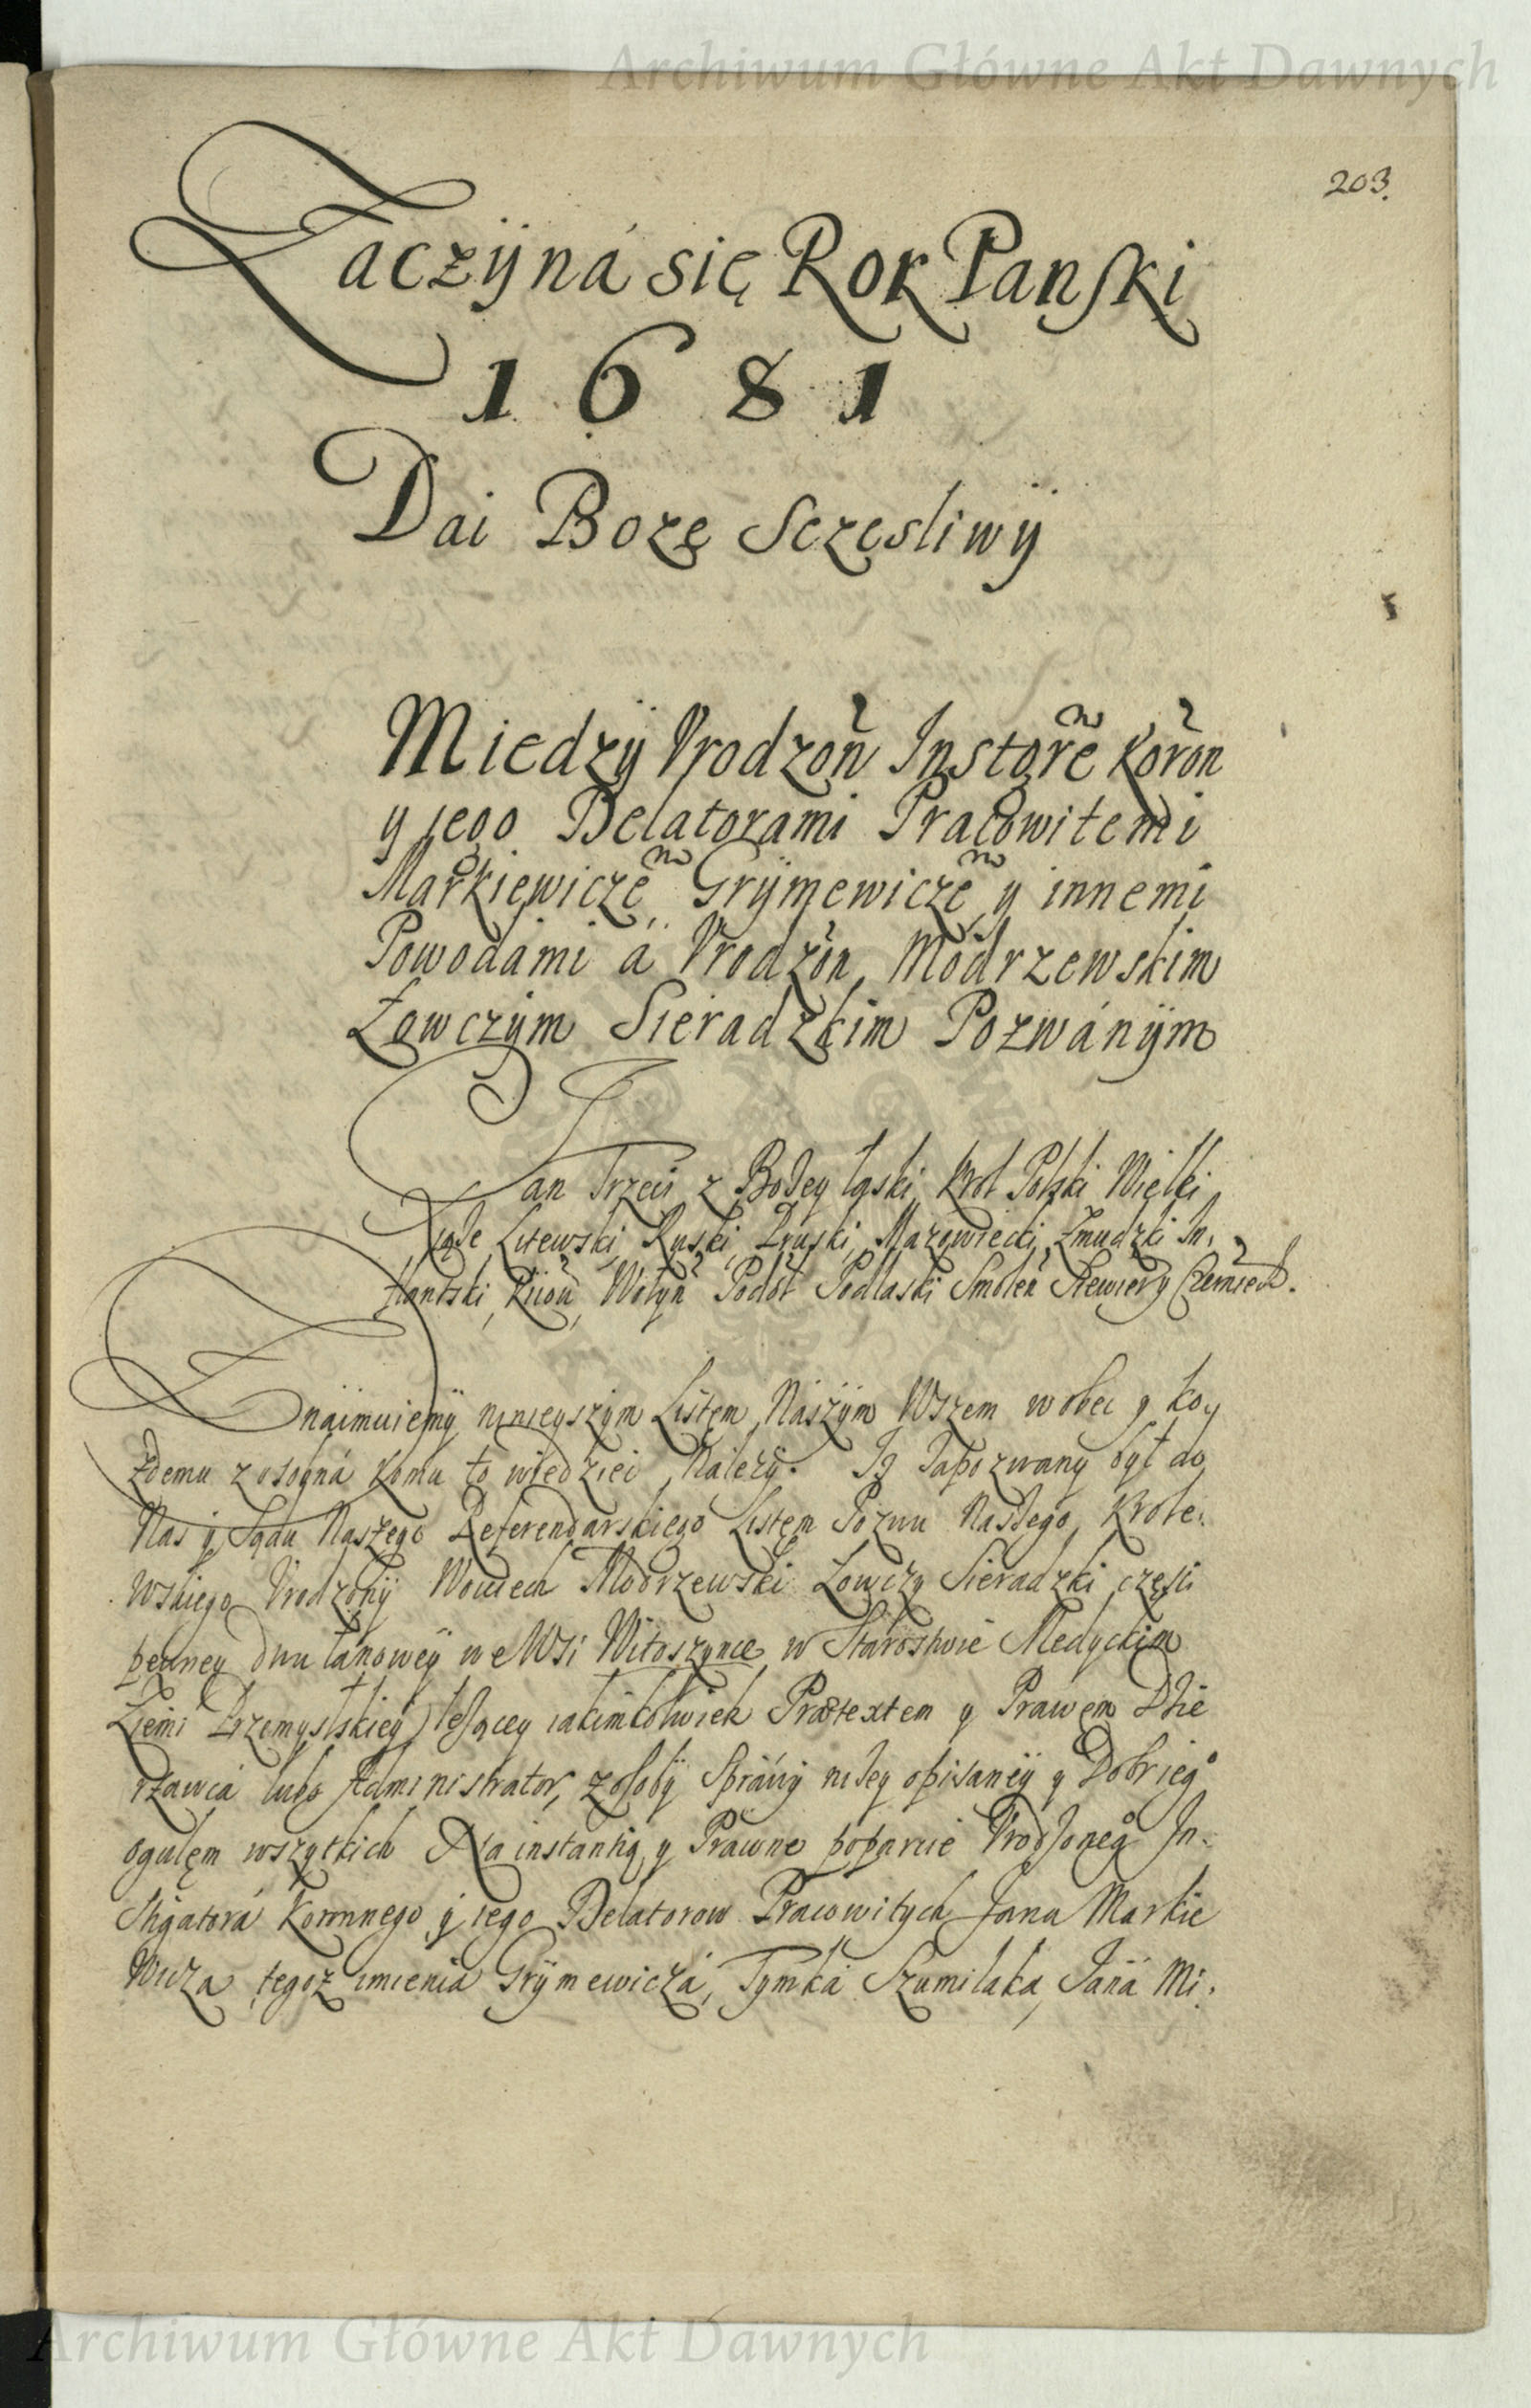 Archiwum Główne Akt Dawnych
203.
Zaczÿná się Rok Panski
1681
Dai Bozę Sczęsliwÿ
Miedzÿ Vrodzon̄ Instgōre Koron
y jego Delatorami Pracowitemi
Markiewicze, Grÿmewicze y innemi
Powodámi á Vrodzon, Modrzewskim
Łowczÿm Sieradzkim Pozwánÿm
Jan Trzeci z Bozey łaski Krol Polski Wielki
Xiąze Litewski, Ruski, Pruski, Mazowiecki, Zmudzki In,
flantski, Kiiou, Wołyn Podol Podlaski Smolen Siewiery Czerniech.
Znaimuiemÿ ninieyszÿm Listem Nászÿm Wszem wobec y ko,
zdemu zosobná komu to wiedziec Nalezÿ. Iz Zapozwany był do
Nas y Sądu Naszego Referendarskiego Listem Pozwu Naszego Krole,
wskiego Vrodzonÿ Woiciech Modrzewski Łowczy Sieradzki części
pewney dwu łánoweÿ we Wsi Witoszynce w Stárostwie Medyckim
Ziemi Przemyslskieÿ lezącey iakimkolwiek Prætextem y Prawem Dzie
rzawca lubo Administrator, z osobÿ Spráwÿ nizey opisaneÿ y Dobr ieg°
ogułem wszytkich Na instantią y Práwne poparcie Vrodzoneg° In,
stigatorá Koronnego y iego Delatorow Pracowitych Jana Markie
wicza, tegoz imienia Grÿmewiczá, Tymká Szumilaka, Janá Mi,
Archiwum Główne Akt Dawnych